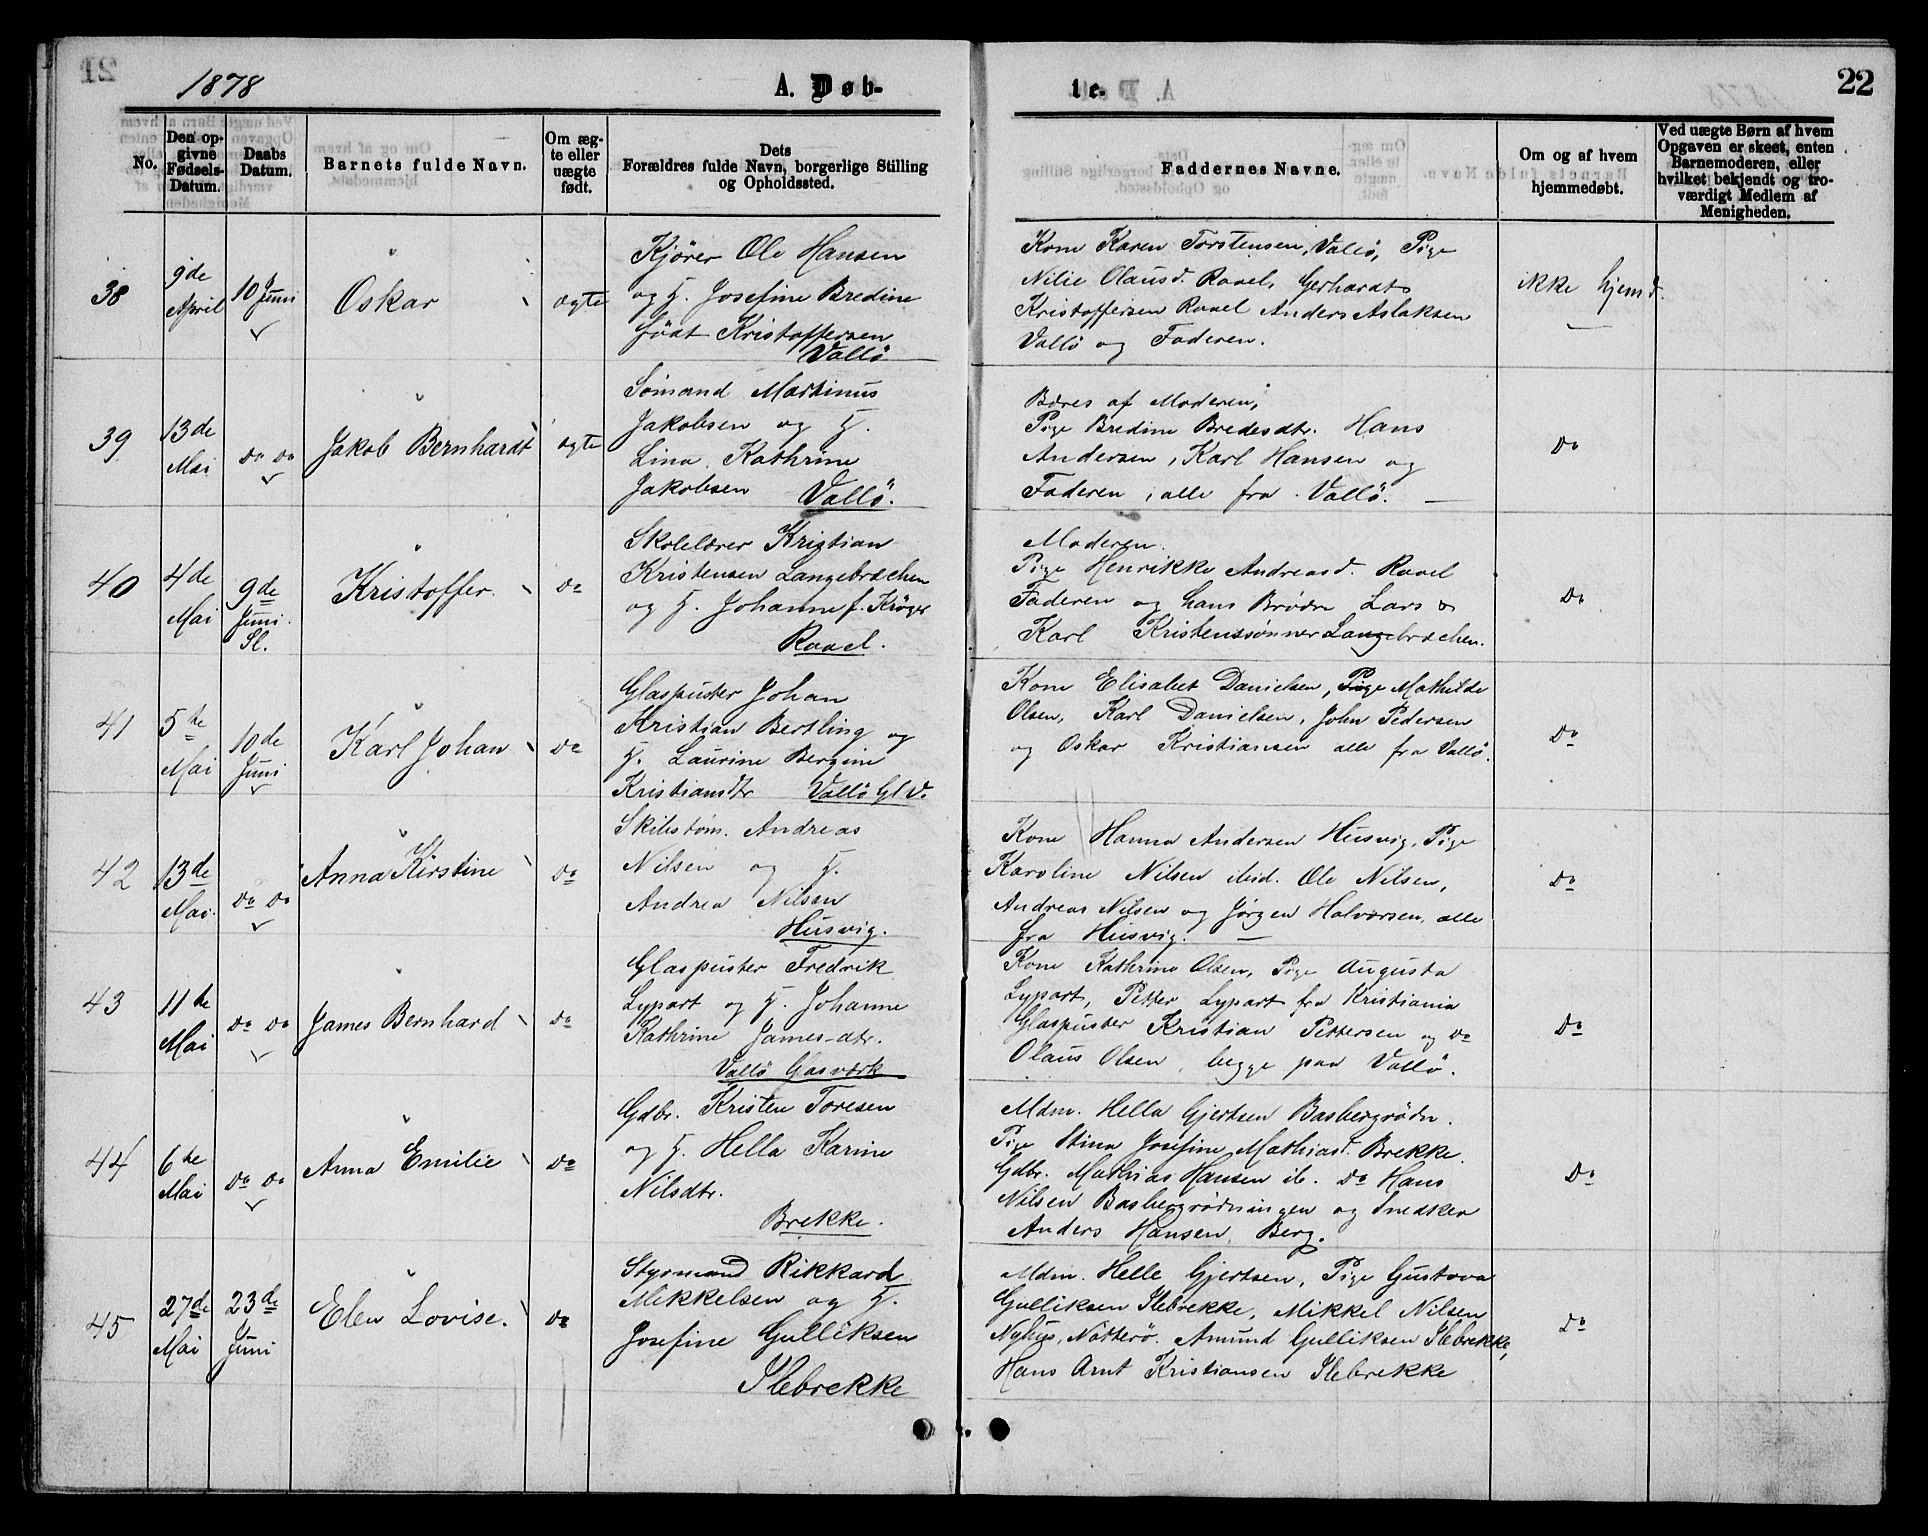 1878
A. Døb-
te.
22
No.
Den op-
givne
Fødsels-
Datum.
Daabs
Datum.
Barnets fulde Navn.
Om æg-
te eller
uægte
født.
Dets
Forældres fulde Navn, borgerlige Stilling
og Opholdssted.
Faddernes Navne.
Om og af hvem
hjemmedøbt.
Ved uægte Børn af hvem
Opgaven er skeet, enten
Barnemoderen, eller
hvilket bekjendt og tro-
værdigt Medlem af
Menigheden.
38
9de
April
10 Juni
Oskar
ægte
Kjører Ole Hansen
og H. Josefine Bredine
født Kristoffersen
Vallö
Kone Karen Torstensen, Vallö, Pige
Nilie Olausd. Ravel, Gerhardt
Kristoffersen Ravel Anders Aslaksen
Vallö og Faderen.
ikke hjemd.
39
13de
Mai
do do
Jakob Bernhardt
ægte
Sömand Martinus
Jakobsen og H.
Lina Kathrine
Jakobsen Vallö.
Bæres af Moderen,
Pige Bredine Bredesdtr. Hans
Andersen, Karl Hansen og
Faderen, alle fra Vallö.
do
40
4de
Mai
9de
Juni
Sl.
Kristoffer
do
Skolelærer Kristian
Kristensen Langebræchen
og H. Johanne f. Kröger
Ravel.
Moderen.
Pige Henrikke Andreasd. Ravel
Faderen og hans Brödre Lars &
Karl Kristenssönner Langebræchen.
do
41
5te
Mai
10de
Juni
Karl Johan
do
Glaspuster Johan
Kristian Bertling og
H. Laurine Bergine
Kristiansdtr Vallö Gl.V.
Kone Elisabet Danielsen, Pige Mathilde
Olsen, Karl Danielsen, John Pedersen
og Oskar Kristiansen alle fra Vallö.
do
42
13de
Mai.
do do
Anna Kirstine
do
Skibstöm. Andreas
Nilsen og H.
Andrea Nilsen
Husvig.
Kone Hanna Andersen Husvig, Pige
Karoline Nilsen ibid. Ole Nilsen,
Andreas Nilsen og Jørgen Halvorsen, alle
fra Husvig.
do
43
11te
Mai
do do
James Bernhard
do
Glaspuster Fredrik
Lypart og H. Johanne
Kathrine James-dtr.
Vallö Glasværk
Kone Kathrine Olsen, Pige Augusta
Lypart, Petter Lypart fra Kristiania
Glaspuster Kristian Pettersen og do
Olaus Olsen, begge paa Vallö.
do
44
6te
Mai
do do
Anna Emilie
do
Gdbr. Kristen Toresen
og H. Hella Karine
Nilsdtr.
Brekke.
Mdm. Hella Gjertsen Basbergrödn.
Pige Stina Josefine Mathiasd. Brekke.
Gdbr. Mathias Hansen ib. do Hans
Nilsen Basbergrödningen og Snedker
Anders Hansen, Berg.
do
45
27de
Mai
23de
Juni
Elen Lovise.
do
Styrmand Rikkard
Mikkelsen og H.
Josefine Gulliksen
Ilebrekke
Mdm. Helle Gjertsen, Pige Gustava
Gulliksen Ilebrekke, Mikkel Nilsen
Nyhus, Nötterö. Amund Gulliksen Ilebrekke,
Hans Arnt Kristiansen Ilebrekke
do